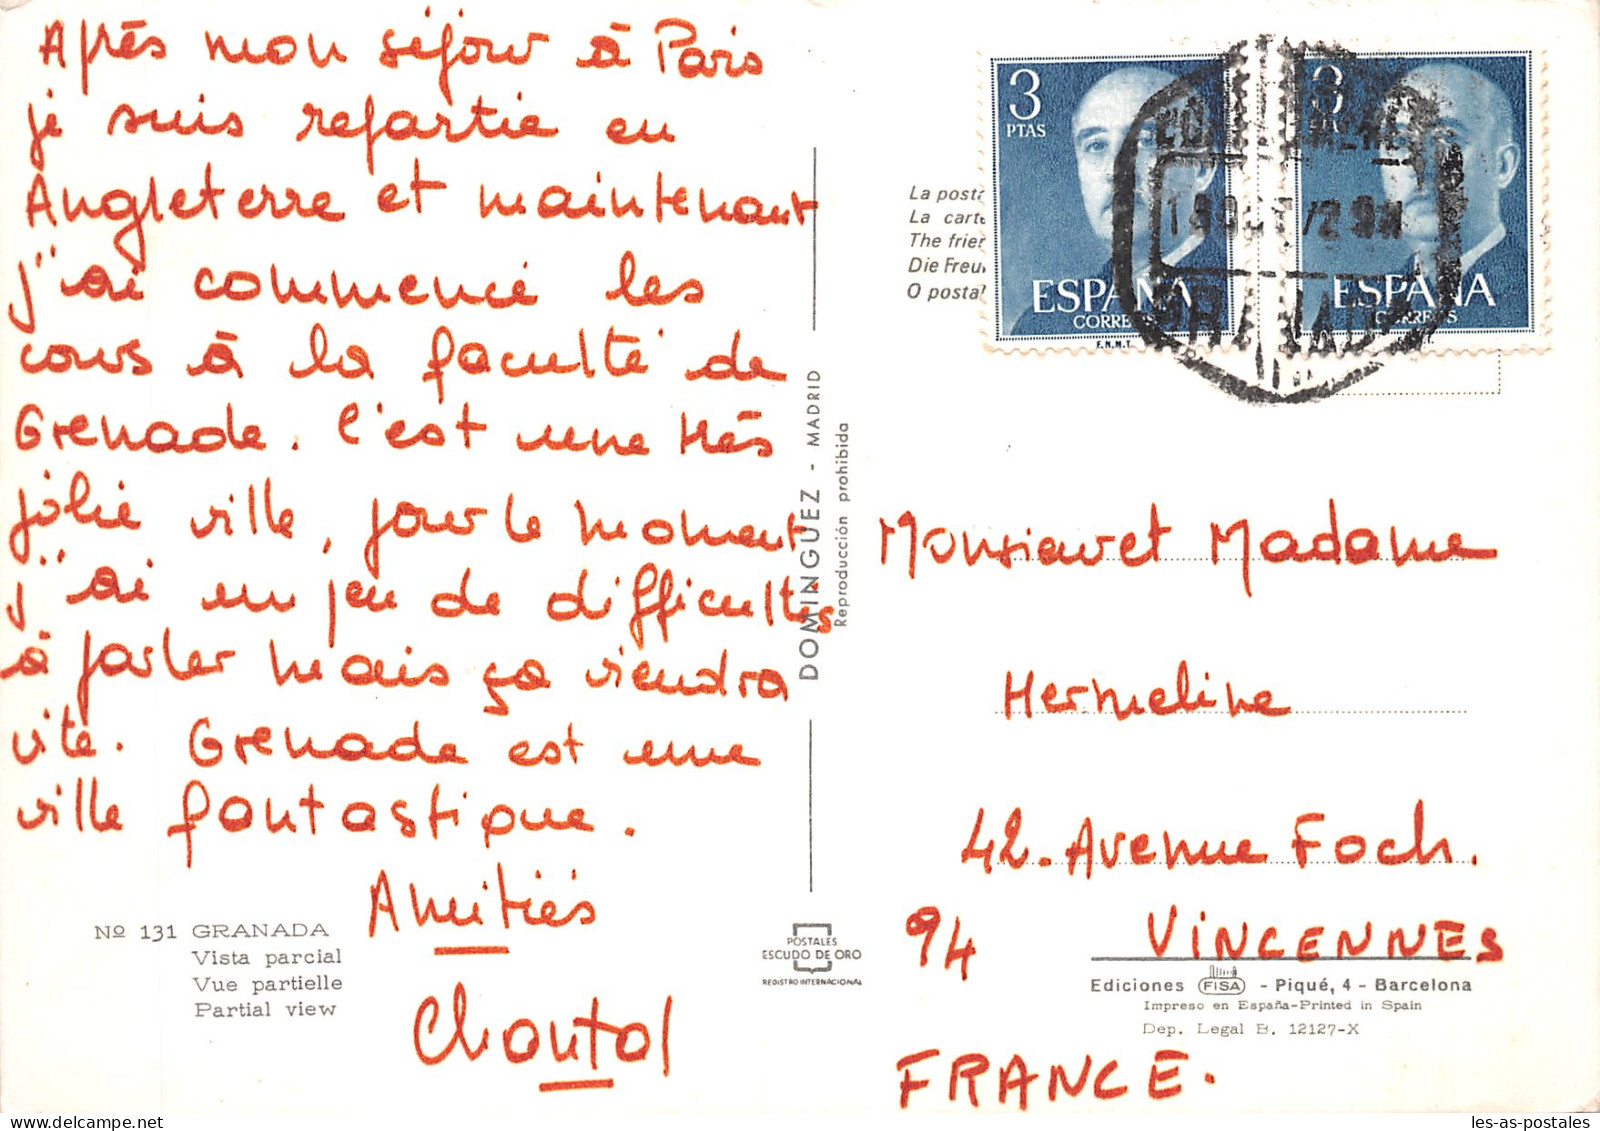 Après mon séjour à Paris
je suis repartie en
Angleterre et maintenant
j'ai commencé les
cours à la faculté de
Grenade. C'est une très
jolie ville, pour le moment
j'ai un peu de difficultés
à parler mais ça viendra
vite. Grenade est une
ville fantastique.
Amitiés
Chantal
Nº 131 GRANADA
Vista parcial
Vue partielle
Partial view
DOMINGUEZ - MADRID
Reproducción prohibida
POSTALES
ESCUDO DE ORO
REGISTRO INTERNACIONAL
La posta
La carte
The frien
Die Freu
O postal
3
PTAS
ESPAÑA
CORREOS
F.N.M.T.
3
ESPAÑA
CORREOS
GRANADA
Monsieur et Madame
Hermeline
42. Avenue Foch.
94 VINCENNES
FRANCE.
Ediciones FISA - Piqué, 4 - Barcelona
Impreso en España-Printed in Spain
Dep. Legal B. 12127-X
les-as-postales